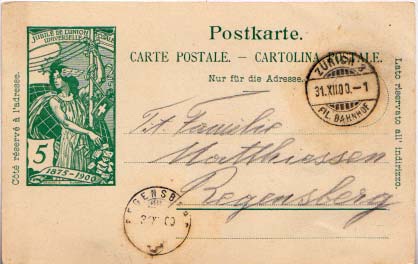 JUBILÉ DE L'UNION
UNIVERSELLE POSTALE
5
1875-1900
Postkarte.
CARTE POSTALE. – CARTOLINA POSTALE.
Nur für die Adresse.
Côté réservé à l'adresse.
Lato riservato all' indirizzo.
31.XII.00.-1
FIL. BAHNHOF
Familie
Matthiessen
Regensberg
REGENSBERG